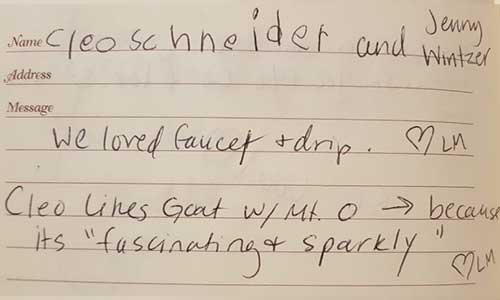 Name Cleo schneider and Jenny Wintzer
Address
Message
We loved Faucet + drip. ♡ LM
Cleo likes Goat w/ Mt. O → because
its "fascinating + sparkly"
♡ LM